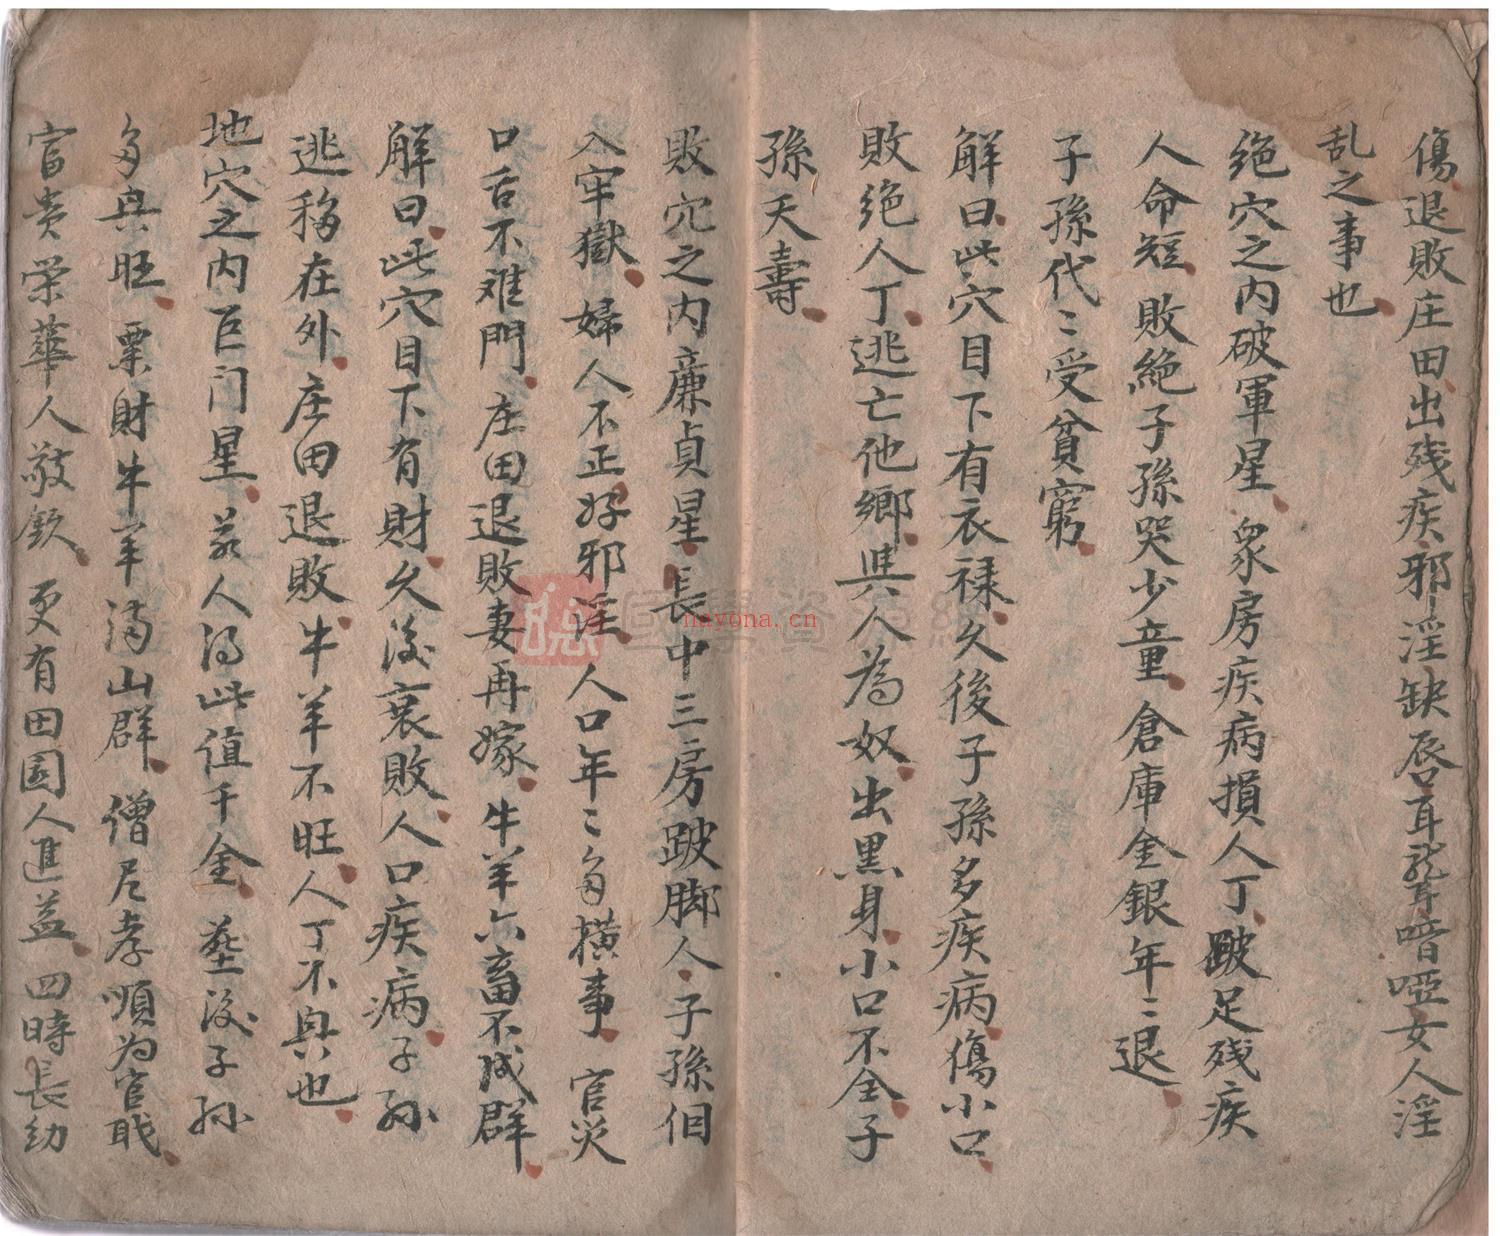 傷退敗庄田出残疾邪淫缺唇耳聾喑啞女人淫
乱之事也
絕穴之内破軍星衆房疾病損人丁跛足残疾
人命短敗絕子孫哭少童倉庫金銀年〻退
子孫代〻受貧窮
解曰此穴目下有衣禄久後子孫多疾病傷小口
敗絕人丁逃亡他鄉與人為奴出黑身小口不全子
孫夭壽
敗穴之内亷貞星長中三房跛脚人子孫但
入牢獄婦人不正好邪淫人口年〻多横事官災
口舌不难門庄田退敗妻再嫁牛羊六畜不成群
解曰此穴目下有財久後衰敗人口疾病子孙
逃移在外庄田退敗牛羊不旺人丁不興也
地穴之内巨门星若人得此值千金葬後子孙
多興旺粟財牛羊满山群僧尼孝順为官職
富贵荣華人敬欽更有田園人進益四時長幼
國學資源網
nayona.cn